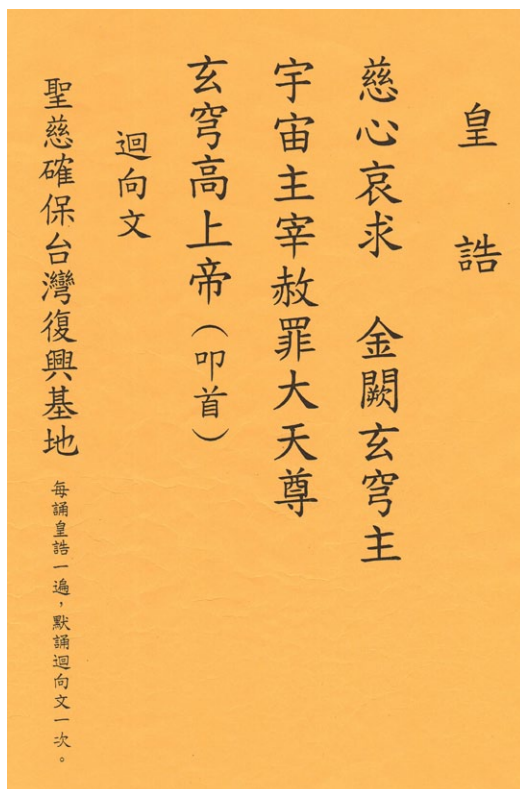 皇誥
慈心哀求　金闕玄穹主
宇宙主宰赦罪大天尊
玄穹高上帝（叩首）
迴向文
聖慈確保台灣復興基地
每誦皇誥一遍，默誦迴向文一次。